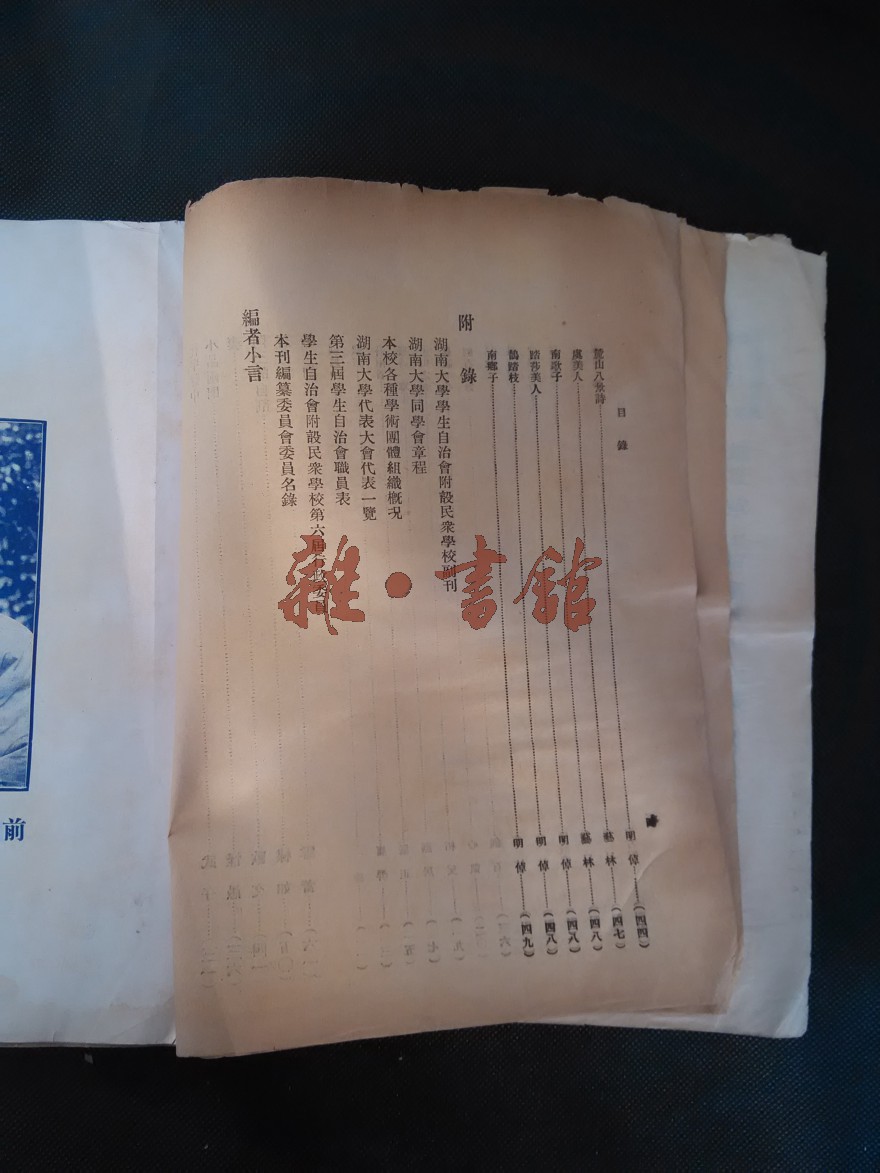 目錄
麓山八景詩……明倬……(四四)
虞美人……藝林……(四七)
南歌子……藝林……(四八)
踏莎美人……明倬……(四八)
鵲踏枝……明倬……(四八)
南鄉子……明倬……(四九)
附錄
湖南大學學生自治會附設民衆學校副刊
湖南大學同學會章程
本校各種學術團體組織概况
湖南大學代表大會代表一覽
第三屆學生自治會職員表
學生自治會附設民衆學校第六屆
本刊編纂委員會委員名錄
編者小言
前
雜·書館